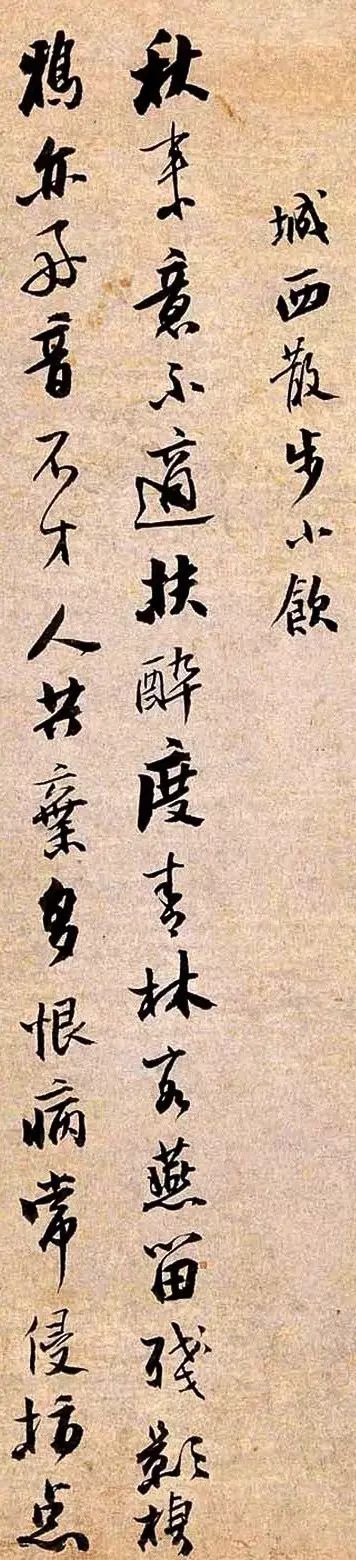 城西散步小飲
秋来意不適扶酔度青林客燕留殘影棲
鴉亦好音不才人共棄多恨病常侵指点